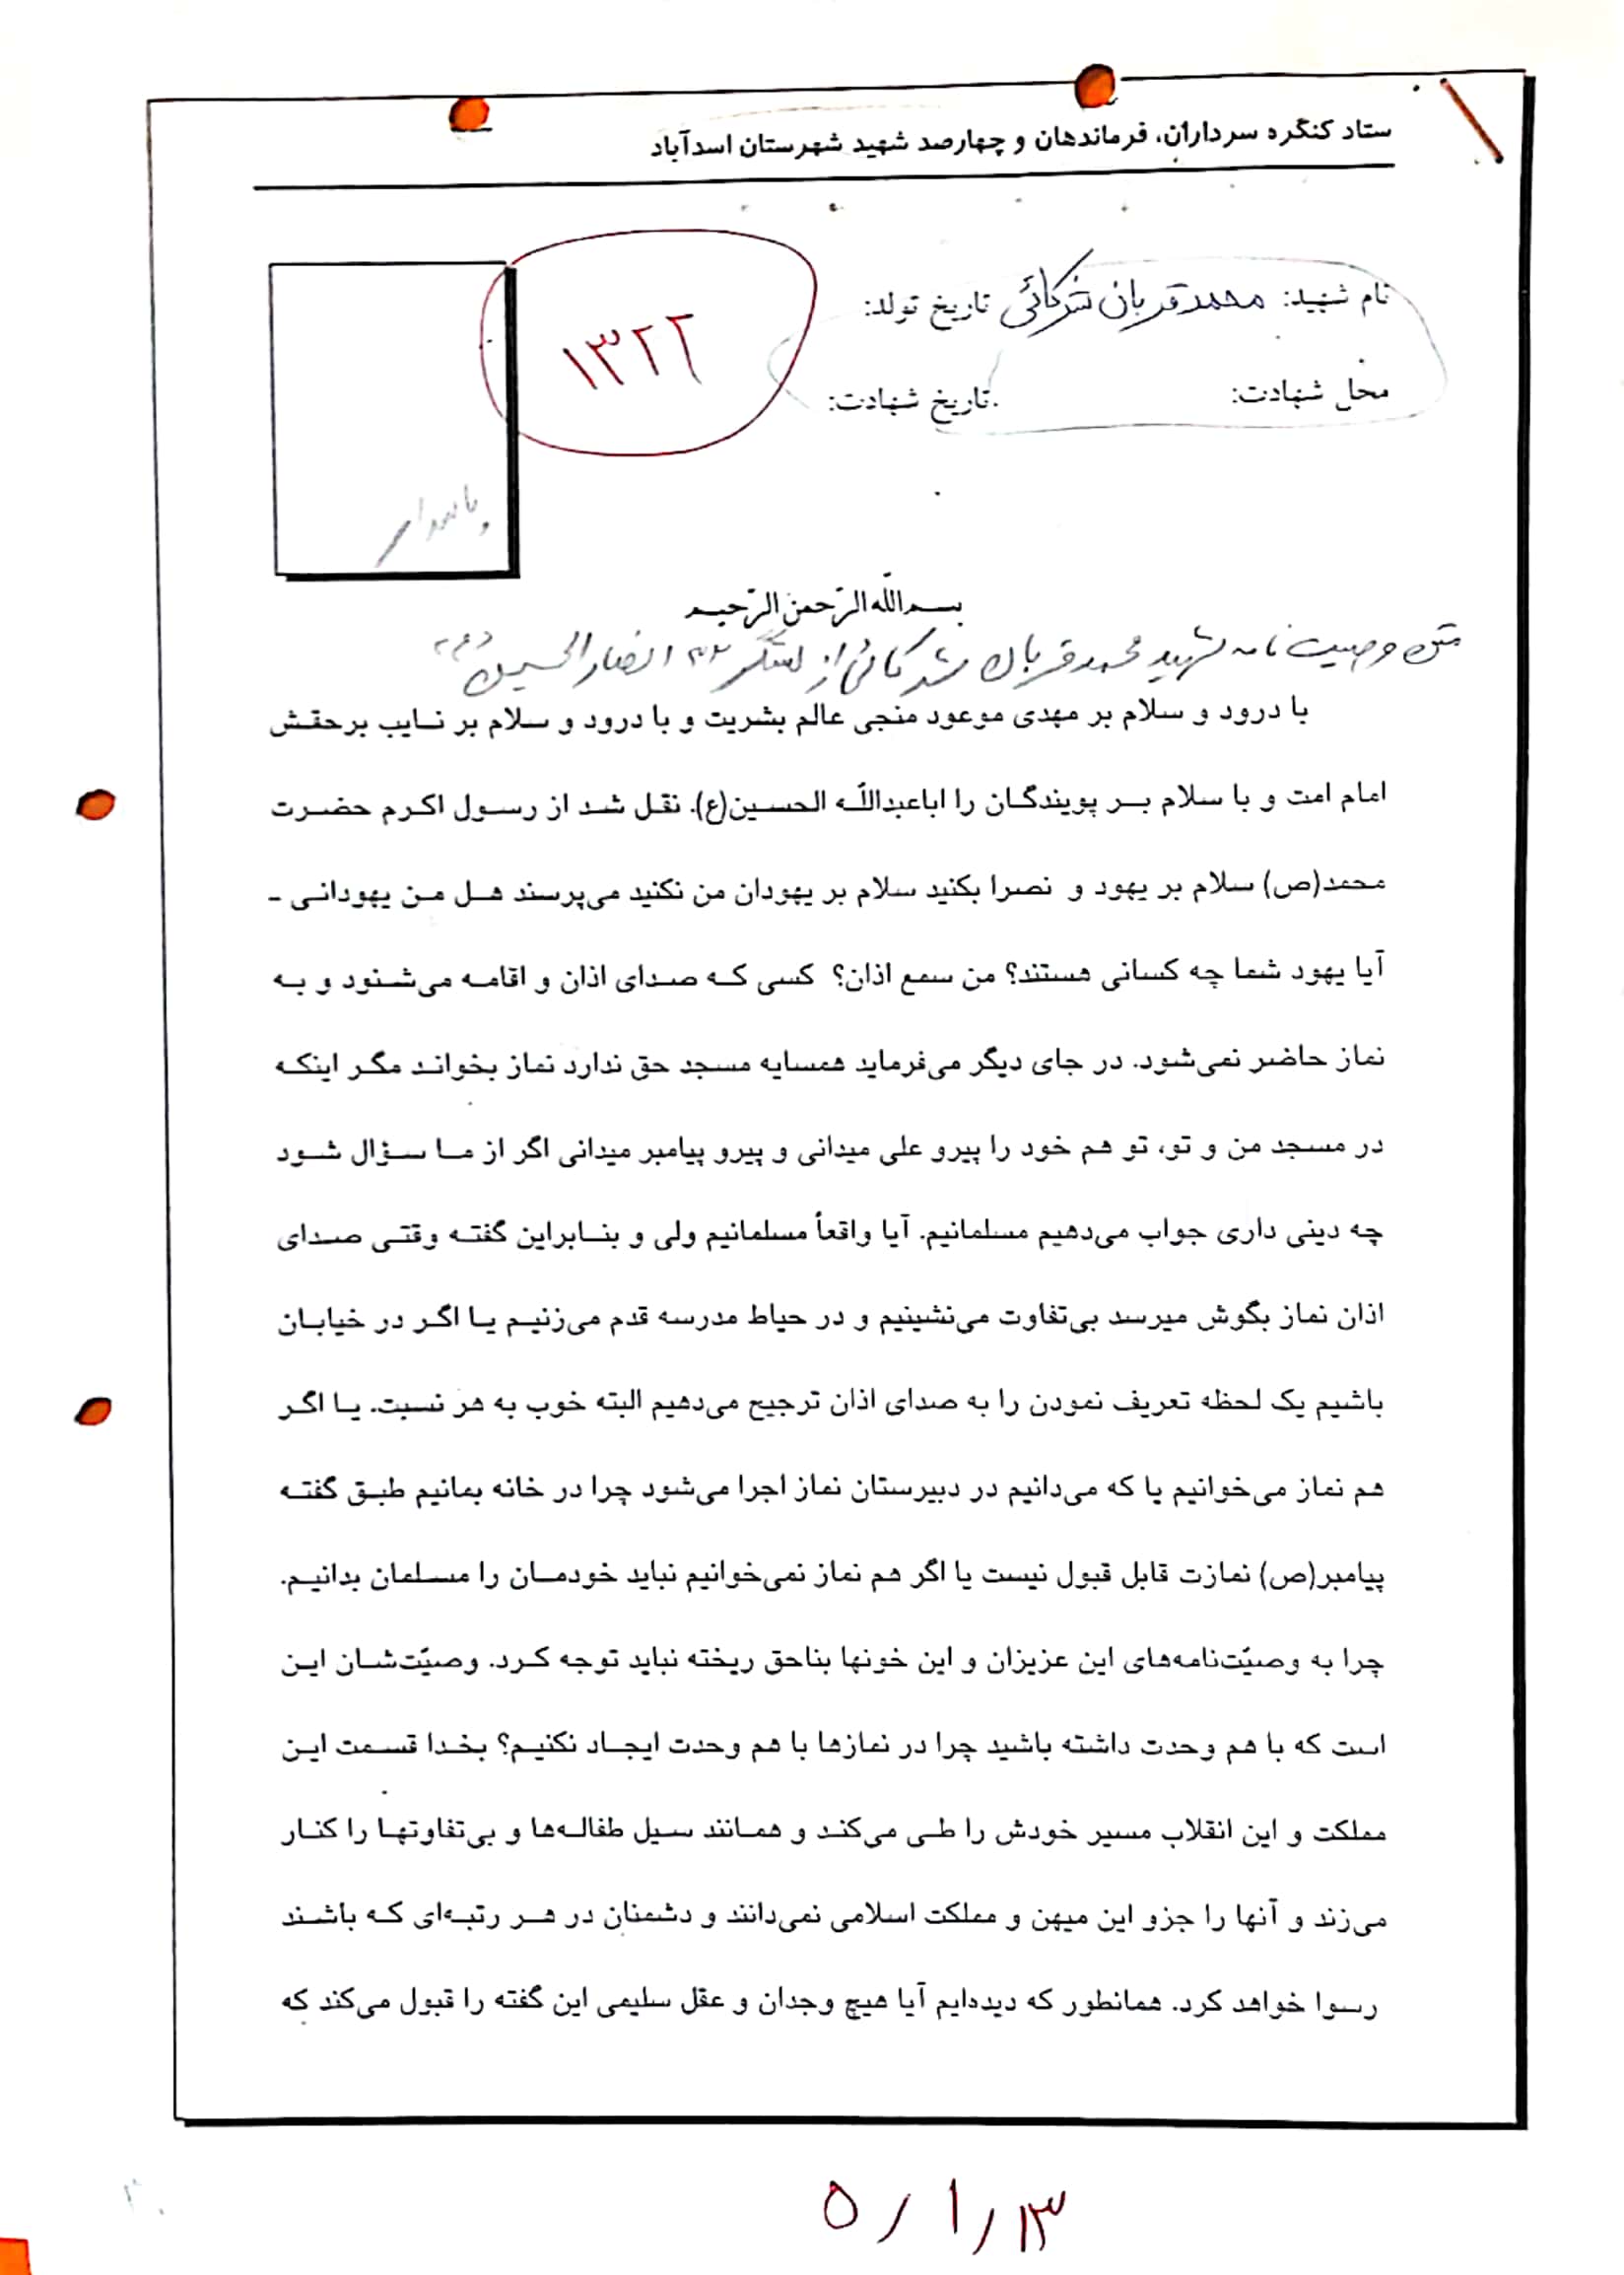 ستاد کنگره سرداران، فرماندهان و چهارصد شهید شهرستان اسدآباد
نام شهید: محمد قربان شرکائی تاریخ تولد:
۱۳۲۲
محل شهادت: تاریخ شهادت:
بسم‌الله الرّحمن الرّحیم
متن وصیت نامه شهید محمد قربان شرکائی از لشگر ۳۲ انصارالحسین
با درود و سلام بر مهدی موعود منجی عالم بشریت و با درود و سلام بر نایب برحقش
امام امت و با سلام بر پویندگان را اباعبداللّه الحسین(ع). نقل شد از رسول اکرم حضرت
محمد(ص) سلام بر یهود و نصرا بکنید سلام بر یهودان من نکنید می‌پرسند هل من یهودانی -
آیا یهود شما چه کسانی هستند؟ من سمع اذان؟ کسی که صدای اذان و اقامه می‌شنود و به
نماز حاضر نمی‌شود. در جای دیگر می‌فرماید همسایه مسجد حق ندارد نماز بخواند مگر اینکه
در مسجد من و تو، تو هم خود را پیرو علی میدانی و پیرو پیامبر میدانی اگر از ما سؤال شود
چه دینی داری جواب می‌دهیم مسلمانیم. آیا واقعاً مسلمانیم ولی و بنابراین گفته وقتی صدای
اذان نماز بگوش میرسد بی‌تفاوت می‌نشینیم و در حیاط مدرسه قدم می‌زنیم یا اگر در خیابان
باشیم یک لحظه تعریف نمودن را به صدای اذان ترجیح می‌دهیم البته خوب به هر نسبت. یا اگر
هم نماز می‌خوانیم یا که می‌دانیم در دبیرستان نماز اجرا می‌شود چرا در خانه بمانیم طبق گفته
پیامبر(ص) نمازت قابل قبول نیست یا اگر هم نماز نمی‌خوانیم نباید خودمان را مسلمان بدانیم.
چرا به وصیّت‌نامه‌های این عزیزان و این خونها بناحق ریخته نباید توجه کرد. وصیّت‌شان این
است که با هم وحدت داشته باشید چرا در نمازها با هم وحدت ایجاد نکنیم؟ بخدا قسمت این
مملکت و این انقلاب مسیر خودش را طی می‌کند و همانند سیل طفاله‌ها و بی‌تفاوتها را کنار
می‌زند و آنها را جزو این میهن و مملکت اسلامی نمی‌دانند و دشمنان در هر رتبه‌ای که باشند
رسوا خواهد کرد. همانطور که دیده‌ایم آیا هیچ وجدان و عقل سلیمی این گفته را قبول می‌کند که
۵/۱/۱۳